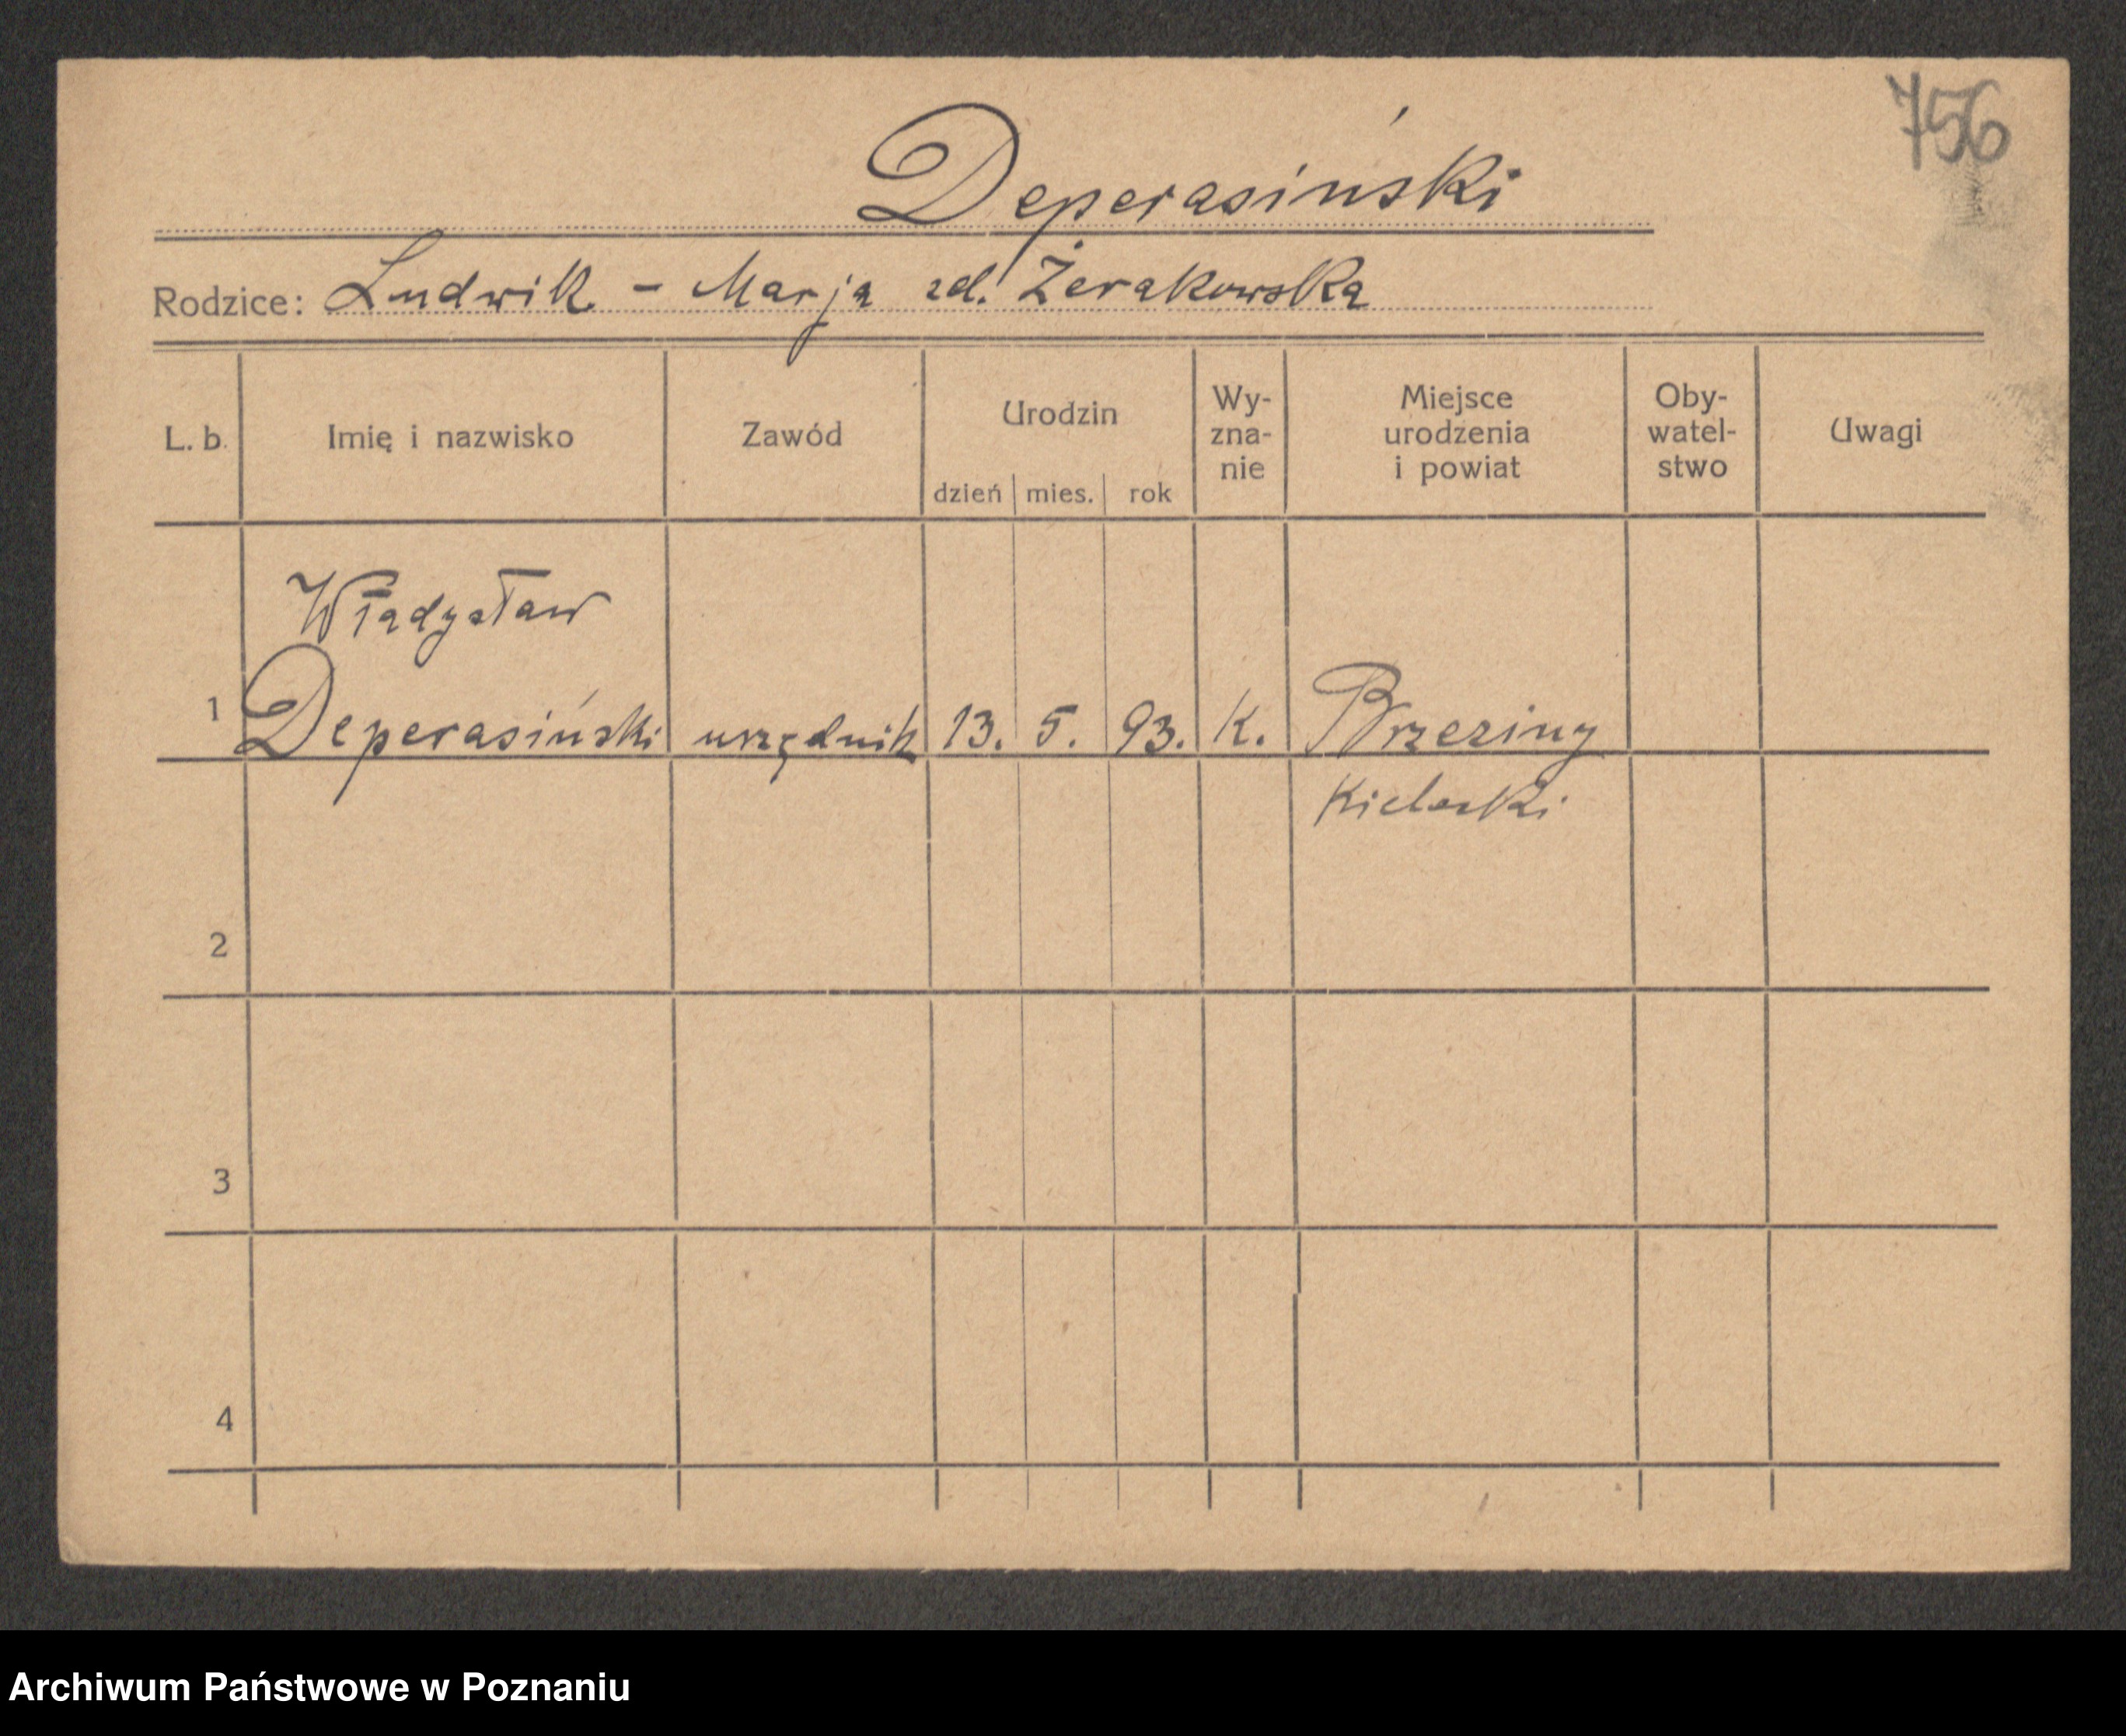 756
Deperasiński
Rodzice: Ludwik - Marja zd. Żerakowska
L. b. Imię i nazwisko Zawód Urodzin dzień mies. rok Wy- zna- nie Miejsce urodzenia i powiat Oby- watel- stwo Uwagi
Władysław
1 Deperasiński urzędnik 13. 5. 93. K. Brzeziny
Kielecki
2
3
4
Archiwum Państwowe w Poznaniu